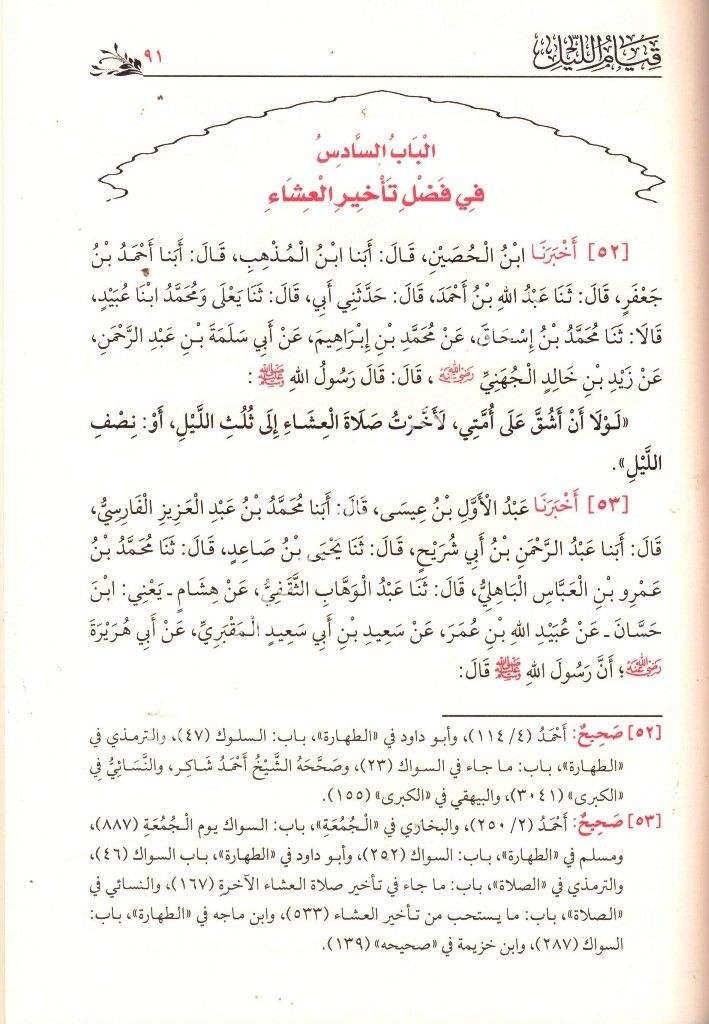 قيام الليل
٩١
الْبَابُ السَّادِسُ
فِي فَضْلِ تَأْخِيرِ الْعِشَاءِ
[٥٢] أَخْبَرَنَا ابْنُ الْحُصَيْنِ، قَالَ: أَبَنا ابْنُ الْمُذْهِبِ، قَالَ: أَبَنا أَحْمَدُ بْنُ
جَعْفَرٍ، قَالَ: ثَنَا عَبْدُ اللهِ بْنُ أَحْمَدَ، قَالَ: حَدَّثَنِي أَبِي، قَالَ: ثَنَا يَعْلَى وَمُحَمَّدُ ابْنَا عُبَيْدٍ،
قَالَا: ثَنَا مُحَمَّدُ بْنُ إِسْحَاقَ، عَنْ مُحَمَّدِ بْنِ إِبْرَاهِيمَ، عَنْ أَبِي سَلَمَةَ بْنِ عَبْدِ الرَّحْمَنِ،
عَنْ زَيْدِ بْنِ خَالِدٍ الْجُهَنِيِّ رَضِيَ اللهُ عَنْهُ، قَالَ: قَالَ رَسُولُ اللهِ ﷺ:
«لَوْلَا أَنْ أَشُقَّ عَلَى أُمَّتِي، لَأَخَّرْتُ صَلَاةَ الْعِشَاءِ إِلَى ثُلُثِ اللَّيْلِ، أَوْ: نِصْفِ
اللَّيْلِ».
[٥٣] أَخْبَرَنَا عَبْدُ الْأَوَّلِ بْنُ عِيسَى، قَالَ: أَبَنا مُحَمَّدُ بْنُ عَبْدِ الْعَزِيزِ الْفَارِسِيُّ،
قَالَ: أَبَنا عَبْدُ الرَّحْمَنِ بْنُ أَبِي شُرَيْحٍ، قَالَ: ثَنَا يَحْيَى بْنُ صَاعِدٍ، قَالَ: ثَنَا مُحَمَّدُ بْنُ
عَمْرِو بْنِ الْعَبَّاسِ الْبَاهِلِيُّ، قَالَ: ثَنَا عَبْدُ الْوَهَّابِ الثَّقَفِيُّ، عَنْ هِشَامٍ ـ يَعْنِي: ابْنَ
حَسَّانَ ـ عَنْ عُبَيْدِ اللهِ بْنِ عُمَرَ، عَنْ سَعِيدِ بْنِ أَبِي سَعِيدٍ الْمَقْبَرِيِّ، عَنْ أَبِي هُرَيْرَةَ
رَضِيَ اللهُ عَنْهُ؛ أَنَّ رَسُولَ اللهِ ﷺ قَالَ:
[٥٢] صَحِيحٌ: أَحْمَدُ (٤/ ١١٤)، وأبو داود في «الطهارة»، باب: السلوك (٤٧)، والترمذي في
«الطهارة»، باب: ما جاء في السواك (٢٣)، وصَحَّحَهُ الشَّيْخُ أَحْمَدُ شَاكِر، والنَّسَائِيُّ فِي
«الكبرى» (٣٠٤١)، والبيهقي في «الكبرى» (١٥٥).
[٥٣] صَحِيحٌ: أَحْمَدُ (٢/ ٢٥٠)، والبخاري في «الْجُمُعَةِ»، باب: السواك يوم الْجُمُعَةِ (٨٨٧)،
ومسلم في «الطهارة»، باب: السواك (٢٥٢)، وأبو داود في «الطهارة»، باب السواك (٤٦)،
والترمذي في «الصلاة»، باب: ما جاء في تأخير صلاة العشاء الآخرة (١٦٧)، والنسائي في
«الصلاة»، باب: ما يستحب من تأخير العشاء (٥٣٣)، وابن ماجه في «الطهارة»، باب:
السواك (٢٨٧)، وابن خزيمة في «صحيحه» (١٣٩).